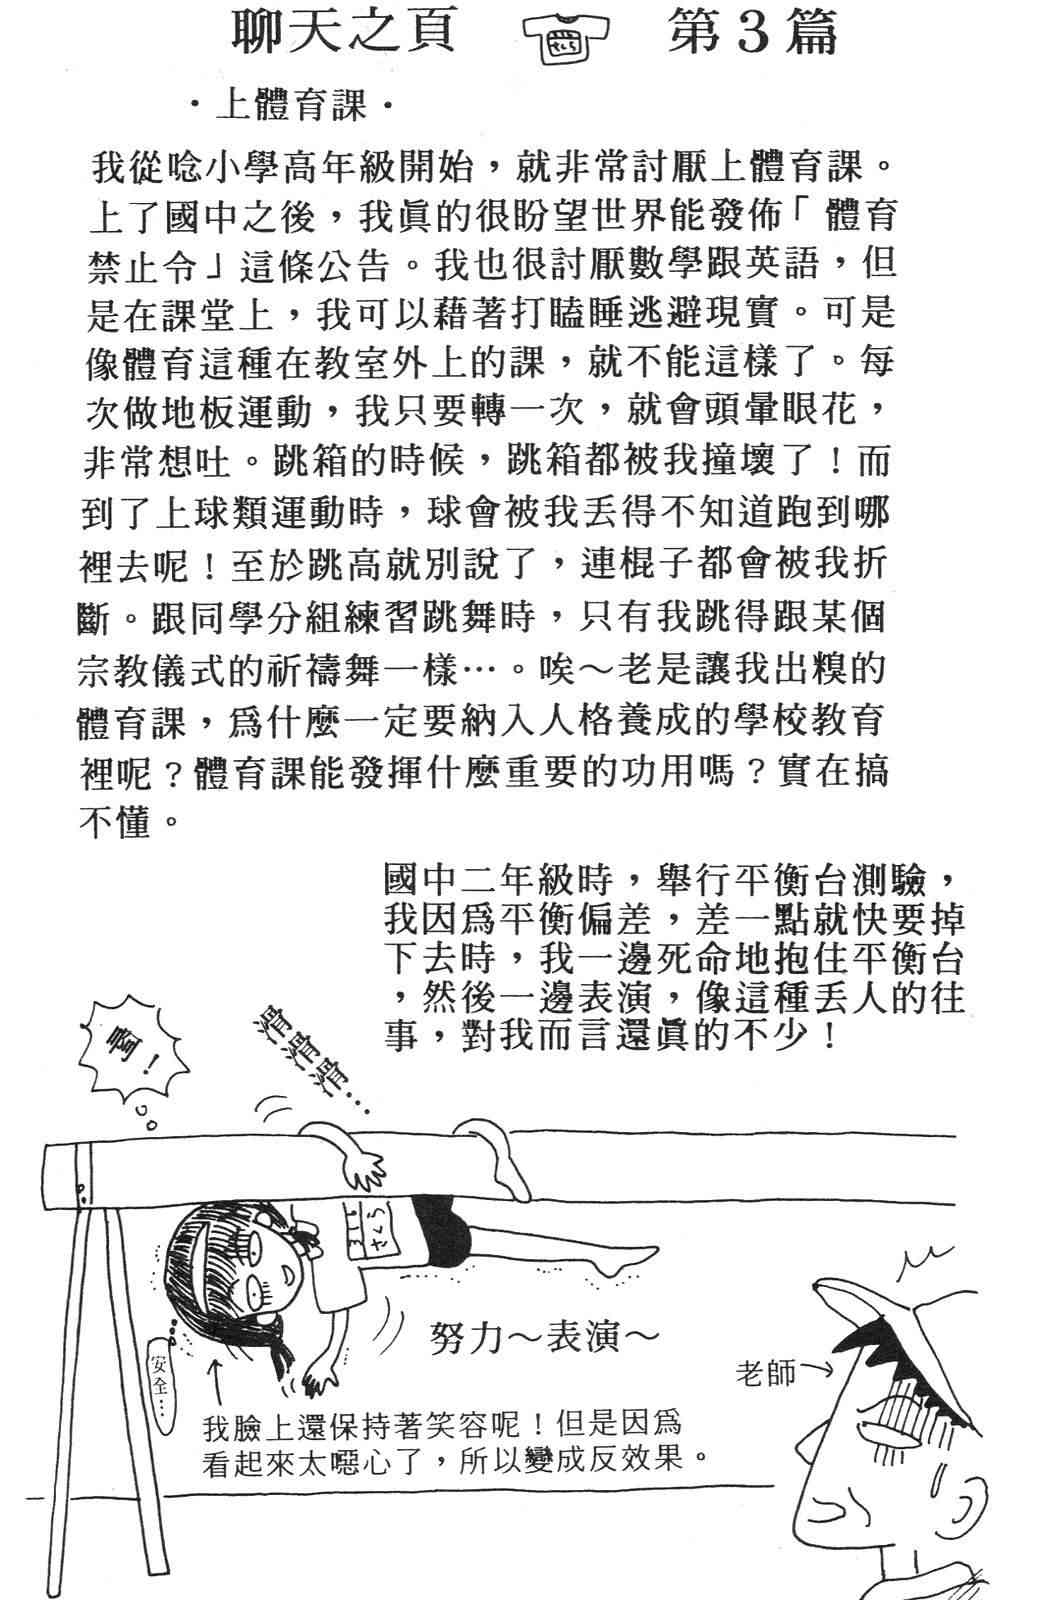 聊天之頁 さくら 第3篇
・上體育課・
我從唸小學高年級開始，就非常討厭上體育課。
上了國中之後，我眞的很盼望世界能發佈「體育
禁止令」這條公告。我也很討厭數學跟英語，但
是在課堂上，我可以藉著打瞌睡逃避現實。可是
像體育這種在教室外上的課，就不能這樣了。每
次做地板運動，我只要轉一次，就會頭暈眼花，
非常想吐。跳箱的時候，跳箱都被我撞壞了！而
到了上球類運動時，球會被我丟得不知道跑到哪
裡去呢！至於跳高就別說了，連棍子都會被我折
斷。跟同學分組練習跳舞時，只有我跳得跟某個
宗教儀式的祈禱舞一樣…。唉～老是讓我出糗的
體育課，爲什麼一定要納入人格養成的學校教育
裡呢？體育課能發揮什麼重要的功用嗎？實在搞
不懂。
國中二年級時，舉行平衡台測驗，
我因爲平衡偏差，差一點就快要掉
下去時，我一邊死命地抱住平衡台
，然後一邊表演，像這種丟人的往
事，對我而言還眞的不少！
滑滑滑…
316
さくら
努力～表演～
老師
安全…
我臉上還保持著笑容呢！但是因爲
看起來太噁心了，所以變成反效果。